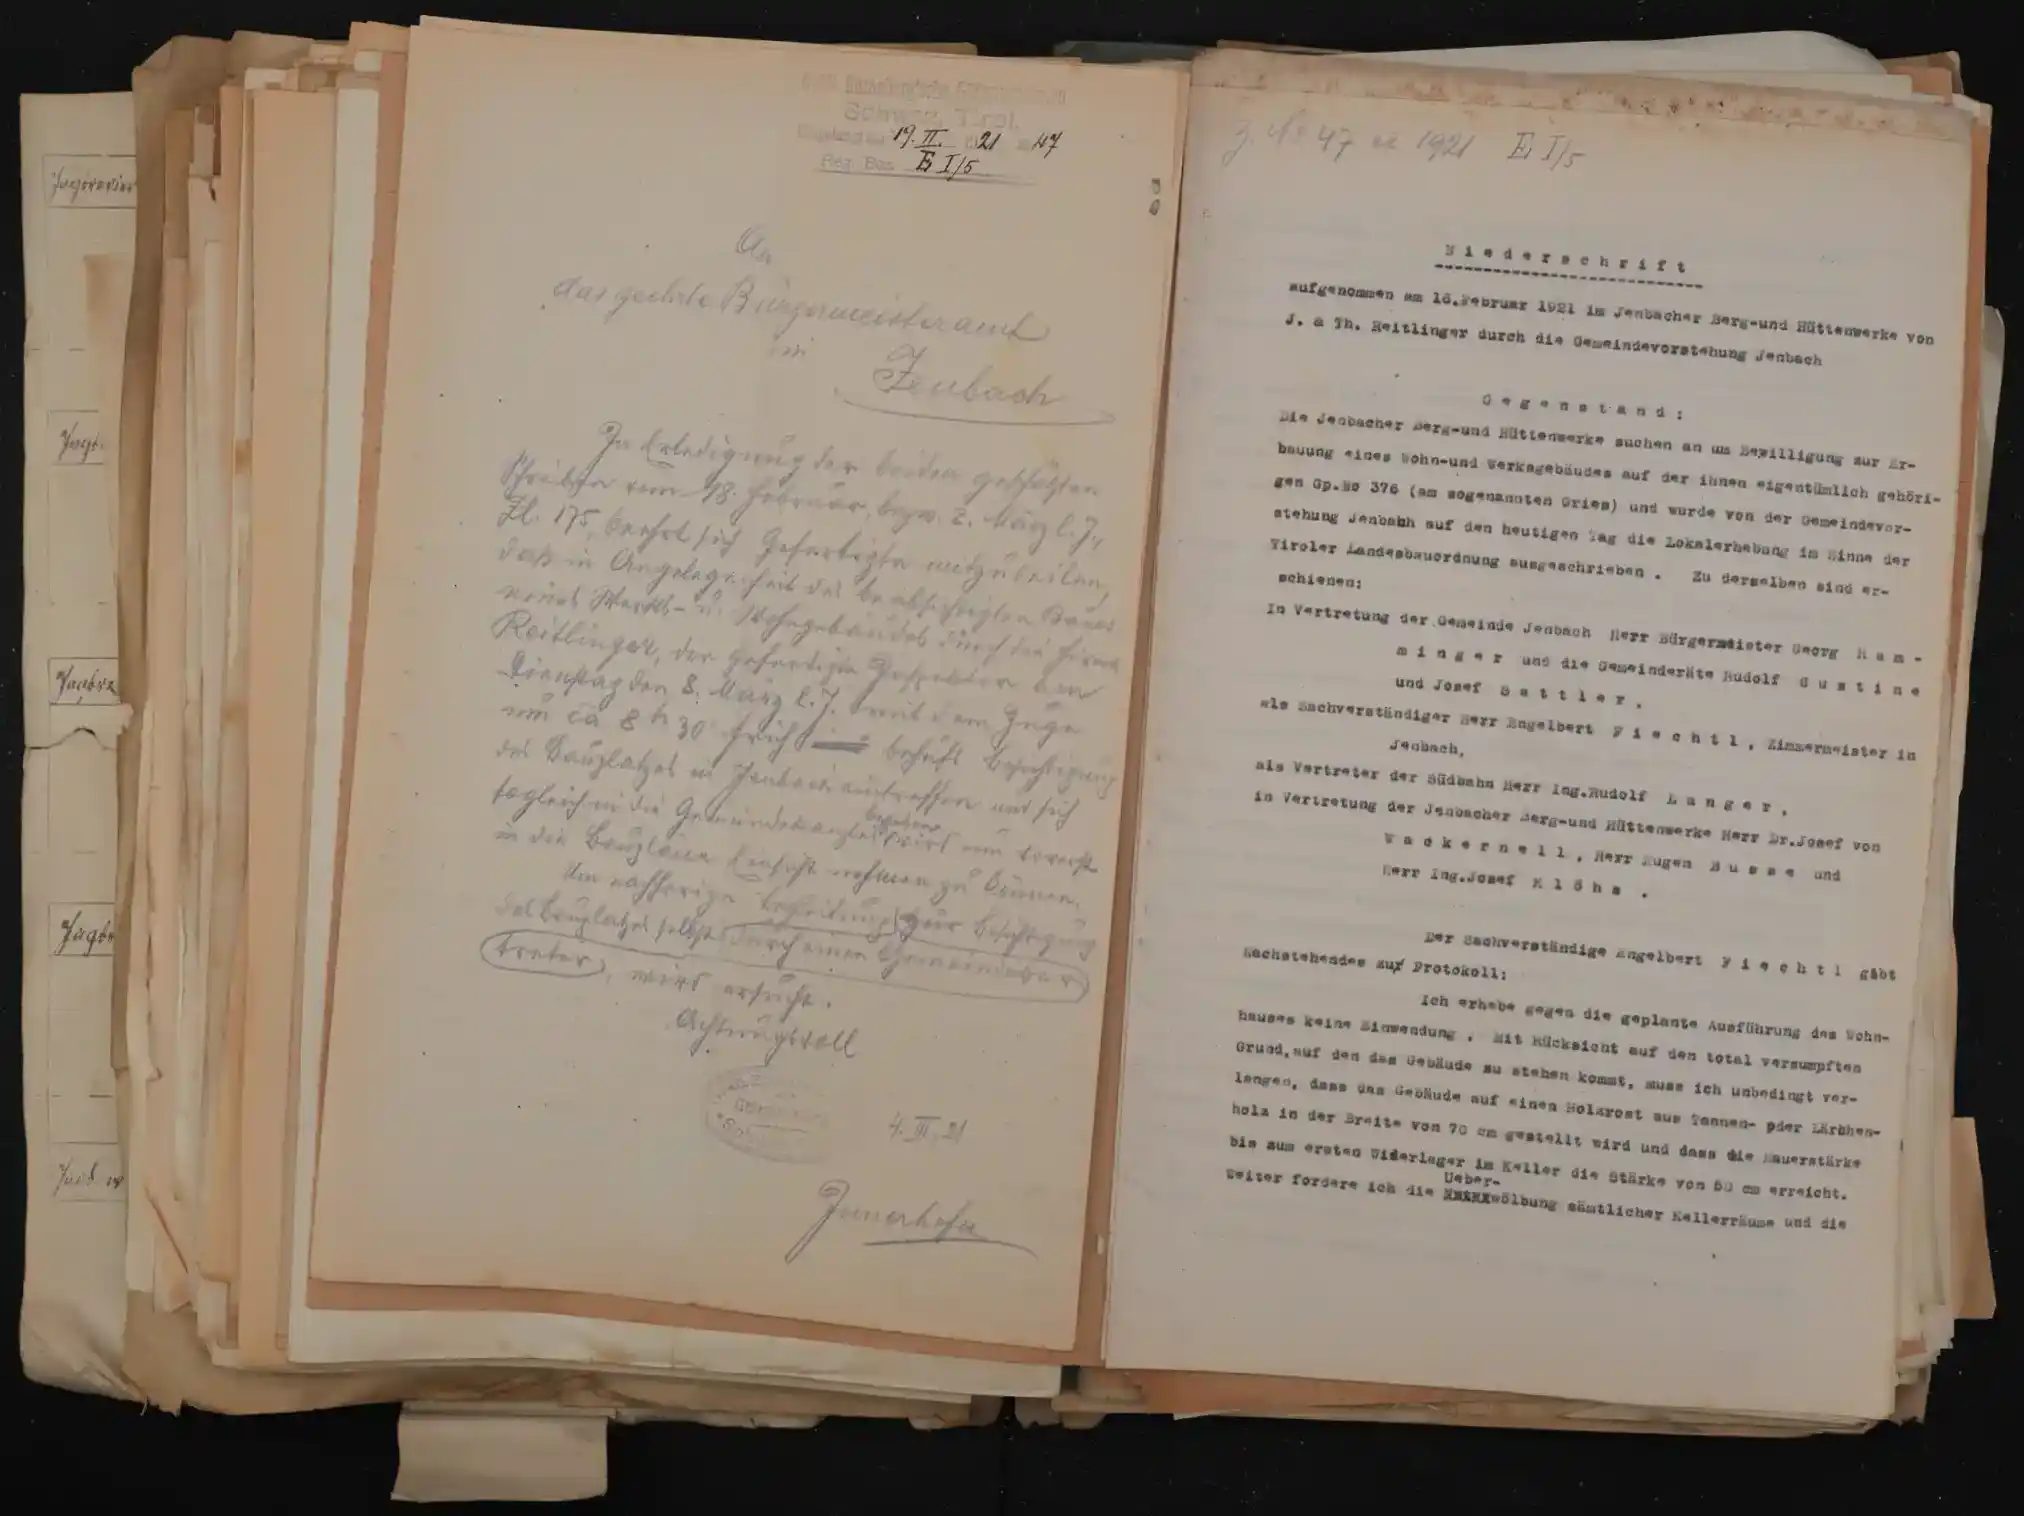 Schwaz, Tirol.
19. II. 21 47
E I/5
An
das geehrte Bürgermeisteramt
in
Jenbach
In Erledigung der beiden geschätzten
Schreiben vom 18. Februar, bezw. 2. März l. J.,
Zl. 175, beehrt sich Gefertigte mitzuteilen,
daß in Angelegenheit des beabsichtigten Baues
eines Werks- u. Wohngebäudes durch die Firma
Reitlinger, der gefertigte Inspektor am
Dienstag den 8. März l. J. mit dem Zuge
um ca 8 h 30 früh behufs Besichtigung
des Bauplatzes in Jenbach eintreffen und sich
sogleich in die Gemeindekanzlei begeben wird um vorerst
in die Baupläne Einsicht nehmen zu können.
Um nachherige Begleitung zur Besichtigung
des Bauplatzes selbst durch einen Gemeindever-
treter, wird ersucht.
Achtungsvoll
4. III. 21
Innerhofer
Z. No 47 ex 1921 E I/5
Niederschrift
aufgenommen am 16.Februar 1921 im Jenbacher Berg-und Hüttenwerke von
J. & Th. Reitlinger durch die Gemeindevorstehung Jenbach
Gegenstand:
Die Jenbacher Berg-und Hüttenwerke suchen an um Bewilligung zur Er-
bauung eines Wohn-und Werksgebäudes auf der ihnen eigentümlich gehöri-
gen Gp.No 376 (am sogenannten Gries) und wurde von der Gemeindevor-
stehung Jenbahh auf den heutigen Tag die Lokalerhebung im Sinne der
Tiroler Landesbauordnung ausgeschrieben . Zu derselben sind er-
schienen:
In Vertretung der Gemeinde Jenbach Herr Bürgermeister Georg Ham-
minger und die Gemeinderäte Rudolf Gustine
und Josef Sattler.
als Sachverständiger Herr Engelbert Fiechtl, Zimmermeister in
Jenbach,
als Vertreter der Südbahn Herr Ing.Rudolf Langer.
in Vertretung der Jenbacher Berg-und Hüttenwerke Herr Dr.Josef von
Wackernell, Herr Eugen Busse und
Herr Ing.Josef Klöhs.
Der Sachverständige Engelbert Fiechtl gibt
Nachstehendes zu Protokoll:
Ich erhebe gegen die geplante Ausführung des Wohn-
hauses keine Einwendung . Mit Rücksicht auf den total versumpften
Grund,auf den das Gebäude zu stehen kommt, muss ich unbedingt ver-
langen, dass das Gebäude auf einen Holzrost aus Tannen- pder Lärchen-
holz in der Breite von 70 cm gestellt wird und dass die Mauerstärke
bis zum ersten Widerlager im Keller die Stärke von 50 cm erreicht.
Weiter fordere ich die Ueber-wölbung sämtlicher Kellerräume und die